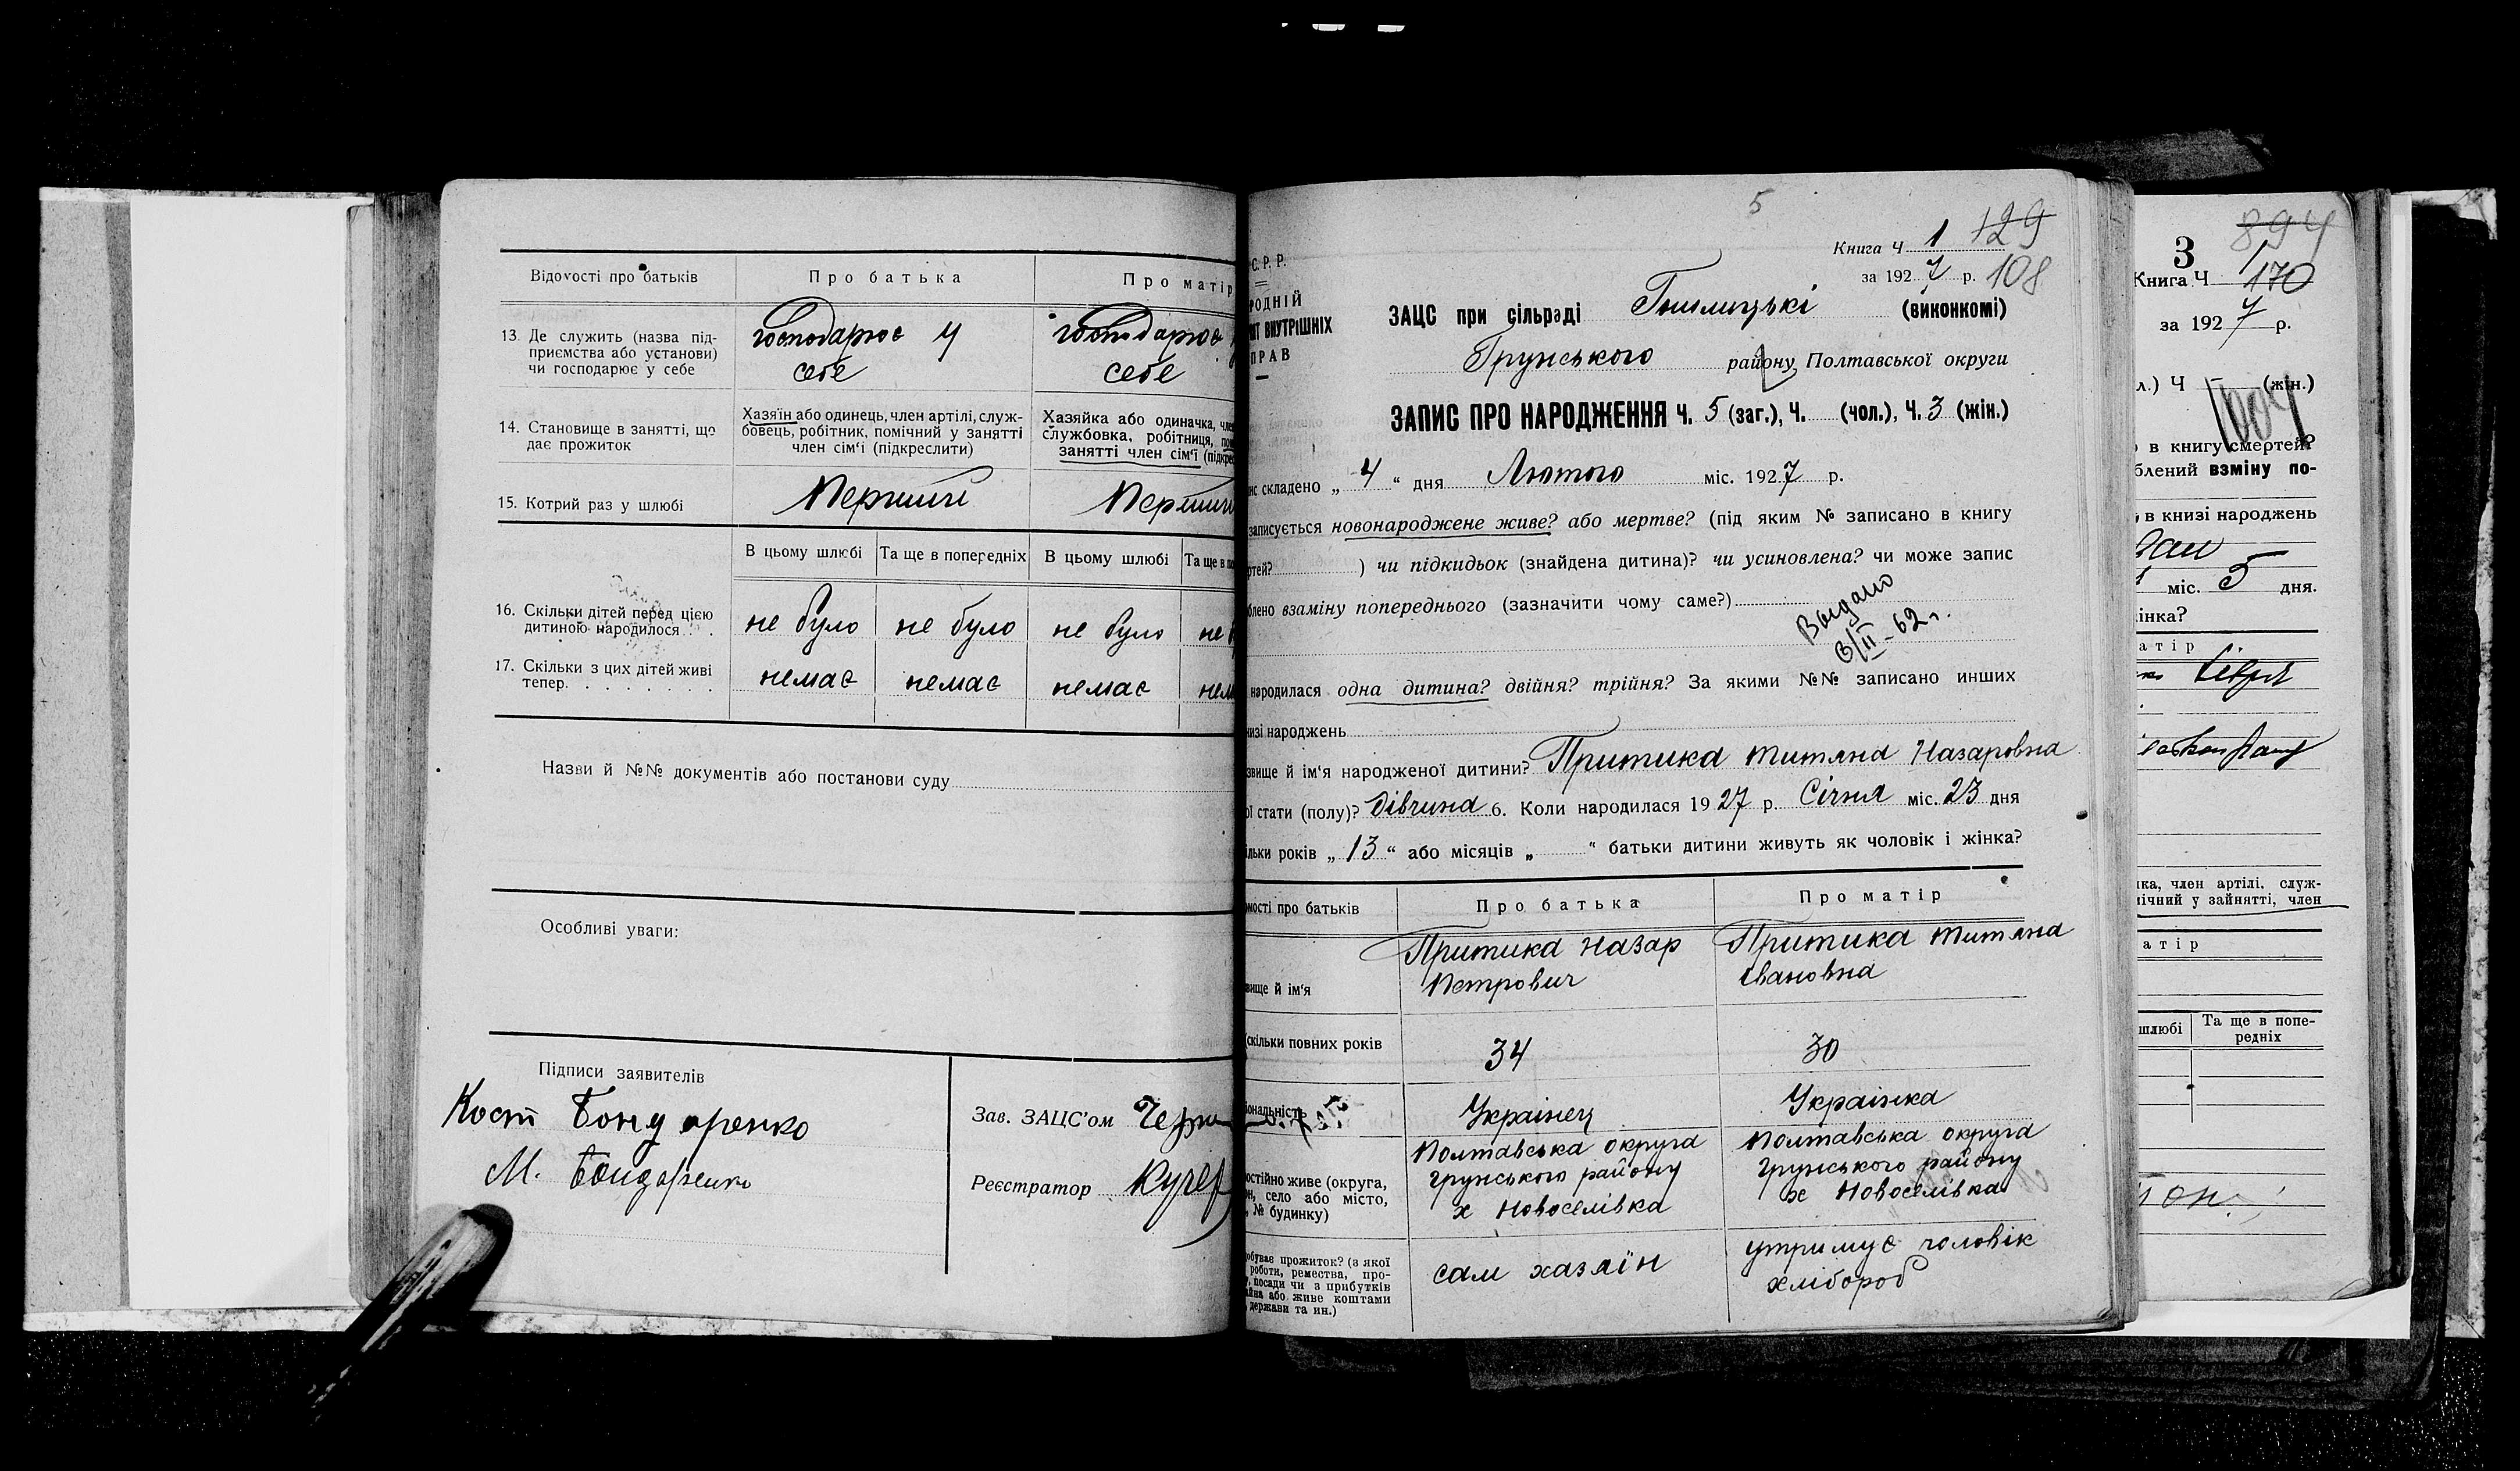 Відомості про батьків
Про батька
Про матір
13. Де служить (назва під-
приємства або установи)
чи господарює у себе
господарює у
себе
господарює
себе
14. Становище в занятті, що
дає прожиток
Хазяїн або одинець, член артілі, служ-
бовець, робітник, помічний у занятті
член сім'ї (підкреслити)
Хазяйка або одиначка, чле
службовка, робітниця, по
занятті член сім'ї (підкре
15. Котрий раз у шлюбі
Перший
Перший
В цьому шлюбі
Та ще в попередніх
В цьому шлюбі
Та ще в по
16. Скільки дітей перед цією
дитиною народилося
не було
не було
не було
не
17. Скільки з цих дітей живі
тепер
немає
немає
немає
нем
Назви й №№ документів або постанови суду
Особливі уваги:
Підписи заявителів
Кост Бондаренко
М. Бондаренко
Зав. ЗАЦС'ом
Реєстратор Кучер
5
Книга Ч 1 129
за 1927 р. 108
С. Р. Р.
РОДНІЙ
ВНУТРІШНІХ
ПРАВ
ЗАЦС при сільраді (виконкомі)
Грунського району Полтавської округи
ЗАПИС ПРО НАРОДЖЕННЯ Ч. 5 (заг.), Ч. (чол.), Ч. 3 (жін.)
ис складено „4“ дня Лютого міс. 1927 р.
записується новонароджене живе? або мертве? (під яким № записано в книгу
ртей? ) чи підкидьок (знайдена дитина)? чи усиновлена? чи може запис
блено взаміну попереднього (зазначити чому саме?)
Выдано
3/II-62 г.
народилася одна дитина? двійня? трійня? За якими №№ записано инших
изі народжень
звище й ім'я народженої дитини? Притика Титяна Назаровна
ої стати (полу)? дівчина 6. Коли народилася 1927 р. Січня міс. 23 дня
ільки років „13“ або місяців „ “ батьки дитини живуть як чоловік і жінка?
мості про батьків
Про батька
Про матір
звище й ім'я
Притика Назар
Петрович
Притика Титяна
Івановна
скільки повних років
34
30
іональність
Українец
Українка
остійно живе (округа,
н, село або місто,
, № будинку)
Полтавська округа
Грунського району
х Новоселівка
Полтавська округа
Грунського району
х Новоселівка
обуває прожиток? (з якої
роботи, ремества, про-
, посади чи з прибутків
айна або живе коштами
, держави та ин.)
сам хазяїн
утримує чоловік
хлібороб
3
894
Книга Ч 170
за 1927 р.
л.) Ч (жін.)
в книгу смертей?
блений взміну по-
в книзі народжень
міс. 5 дня.
інка?
атір
ика, член артілі, служ-
мічний у зайнятті, член
атір
шлюбі
Та ще в попе-
редніх